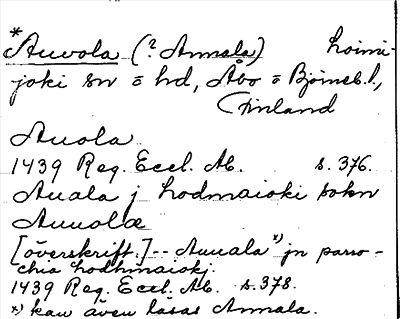 *Auvola (? Annala) Loimi-
joki sn o hd, Åbo o Björneb. l.,
Finland
Auola
1439 Reg. Eccl. Ab. s. 376.
Auala j Lodmaioki sokn
Auuolæ
[överskrift.] -- Auuala *) jn parro-
chia Lodhmaiokj.
1439 Reg. Eccl. Ab. s. 378.
*) kan även läsas Annala.